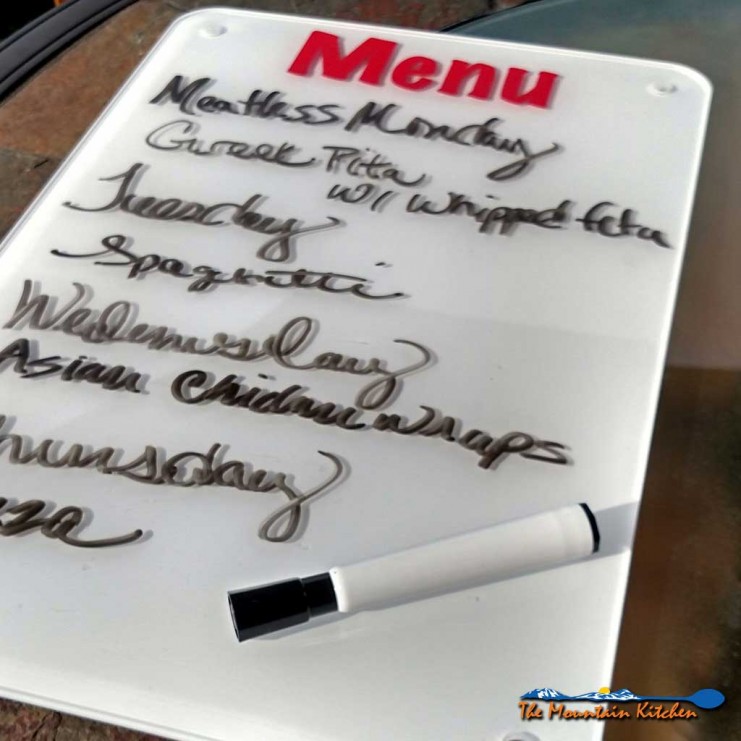 Menu
Meatless Monday
Greek Pita
w/ whipped feta
Tuesday
Spaghetti
Wednesday
Asian Chicken wraps
hursday
zza
The Mountain Kitchen